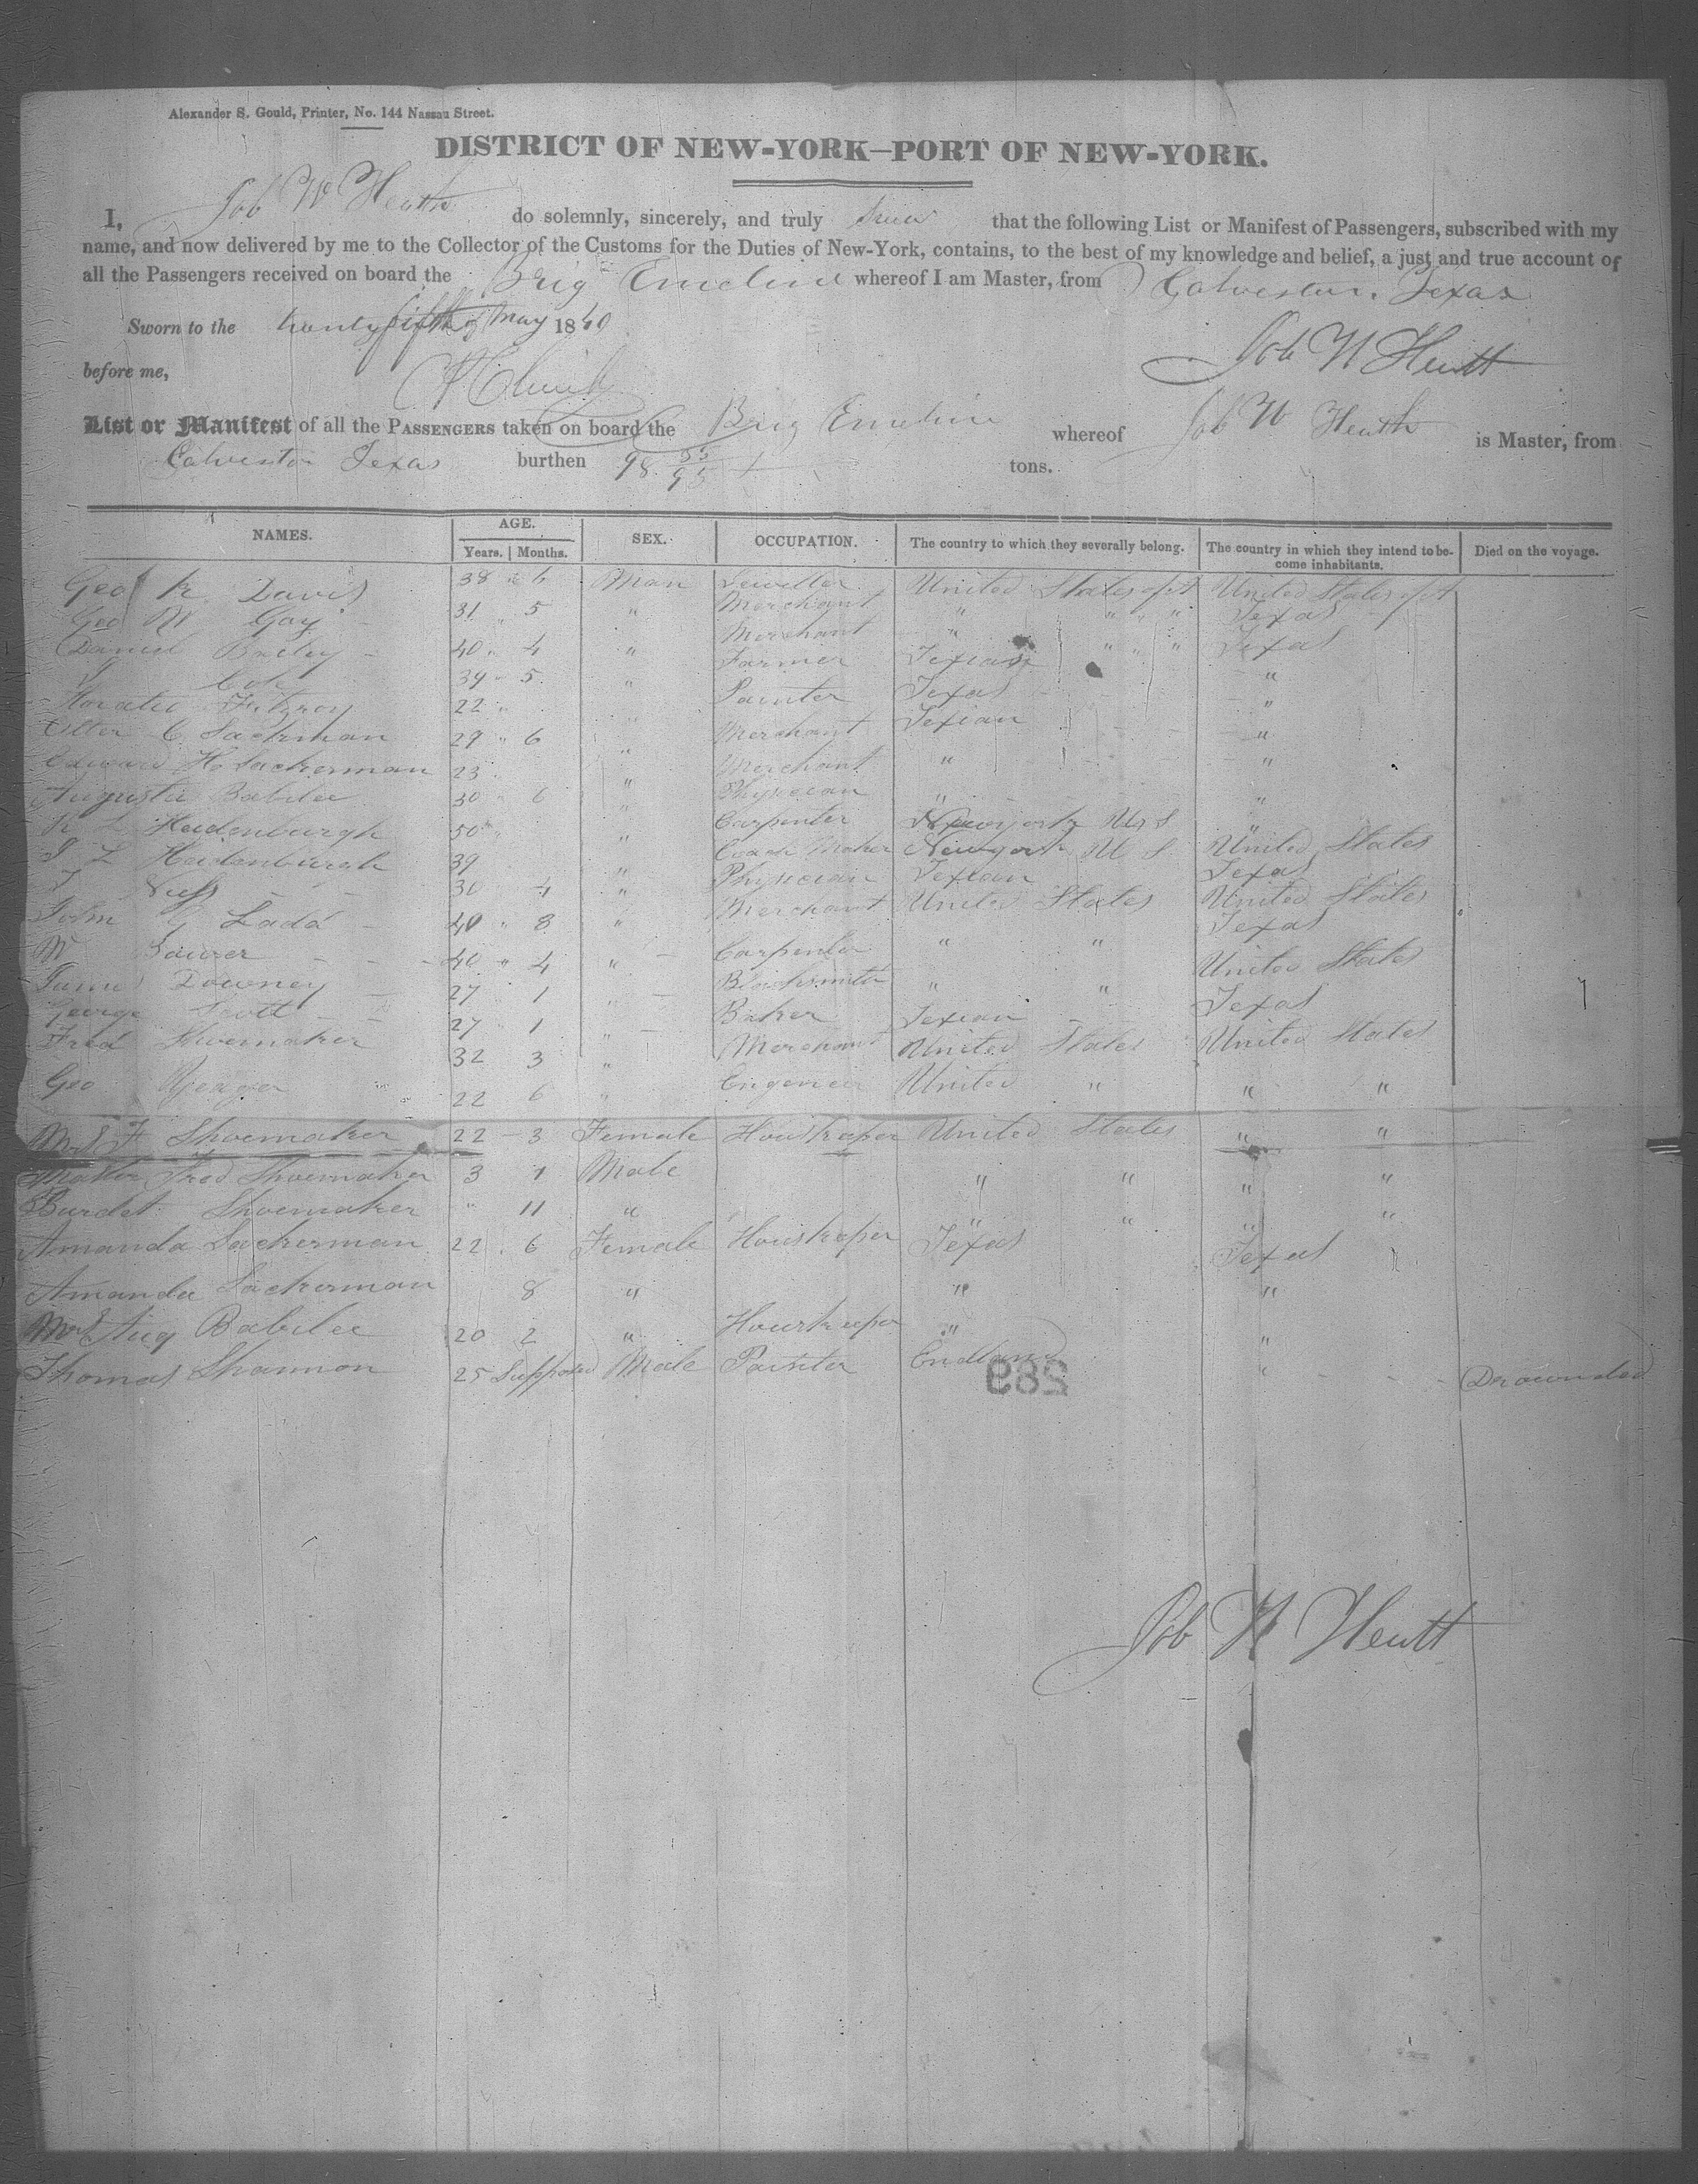 Alexander S. Gould, Printer, No. 144 Nassau Street.
DISTRICT OF NEW-YORK—PORT OF NEW-YORK.
I, Job W Heath do solemnly, sincerely, and truly that the following List or Manifest of Passengers, subscribed with my
name, and now delivered by me to the Collector of the Customs for the Duties of New-York, contains, to the best of my knowledge and belief, a just and true account of
all the Passengers received on board the Brig Emeline whereof I am Master, from Galveston, Texas
Sworn to the twenty fifth of May 1840
Job W Heath
before me,
List or Manifest of all the PASSENGERS taken on board the Brig Emeline whereof Job W Heath is Master, from
Galveston Texas burthen 98 tons.
NAMES. AGE. SEX. OCCUPATION. The country to which they severally belong. The country in which they intend to be- Died on the voyage.
Years. Months. come inhabitants.
Geo R Davis 38 " 6 Man Jeweller United States United States
Geo W Gay 31 " 5 " Merchant " " " " Texas
Daniel Bailey 40 " 4 " Merchant " " " " Texas
39 " 5 " Farmer Texian "
Horatio Fitzroy 22 " " Painter Texas "
C Sackerman 29 " 6 " Merchant Texian "
Edward H Sackerman 23 " " Merchant " "
Augustus Babilee 30 " 6 " Physician " "
R L Heidenburgh 50 " " Carpenter Newyork U S "
L Heidenburgh 39 " Coach Maker Newyork U S United States
30 4 " Physician Texian Texas
John G Ladd 40 " 8 " Merchant United States United States
W 40 " 4 " Carpenter " " Texas
James Downey 27 1 " Blacksmith " " United States
George Scott 27 " 1 " Baker Texian Texas
Fred Shoemaker 32 3 " Merchant United States United States
Geo Yeager 22 6 " Engeneer United " " "
Mrs F Shoemaker 22 - 3 Female Houskeeper United States " "
Master Fred Shoemaker 3 1 Male " " " "
Burdet Shoemaker " 11 " " " " "
Amanda Sackerman 22 . 6 Female Houskeeper Texas Texas
Amanda Sackerman 8 " " "
Mrs Aug Babilee 20 2 " Hourskeeper " "
Thomas Shannon 25 Supposed Male Painter England " Drownded
289
Job W Heath